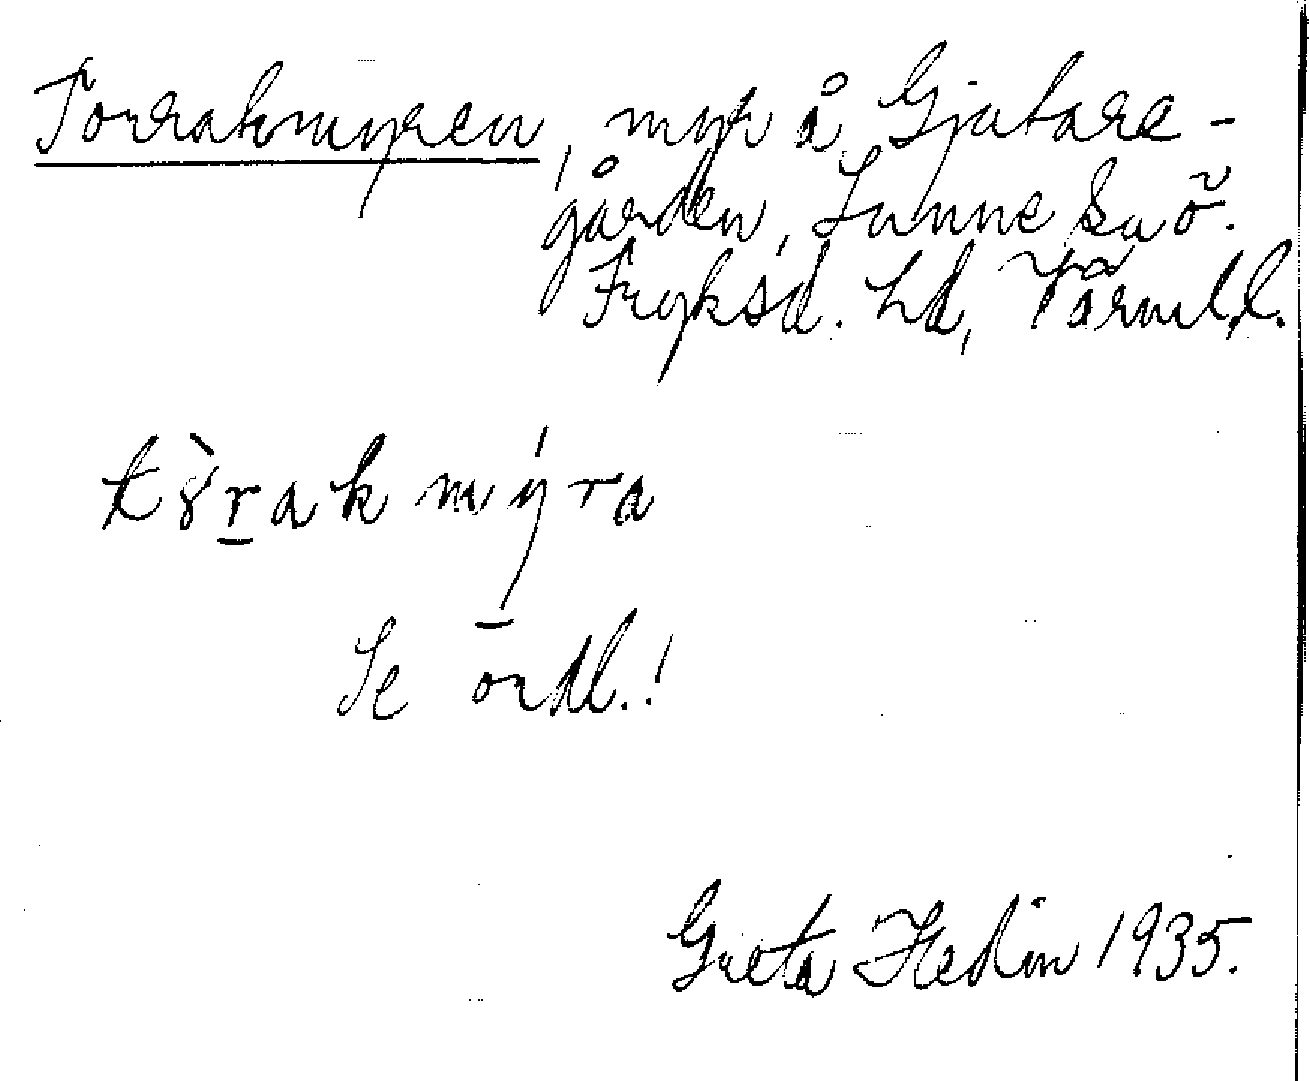 Torrakmyren, myr å Gjutare-
gården, Sunne sn ö.
Fryksd. hd, Värml.l.
tȣ̀r̲akmýra
Se ōrdl.!
Greta Hedin 1935.